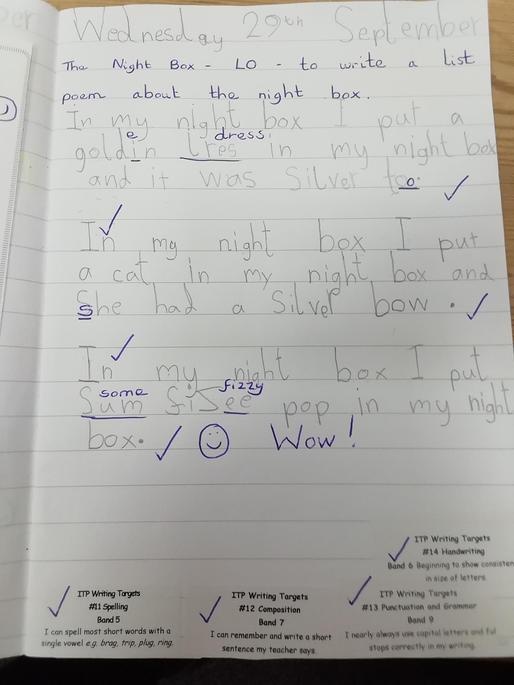 Wednesday 29th September
The Night Box - LO - to write a list
poem about the night box.
In my night box I put a
e dress.
goldin tres in my night box
and it was Silver too.
In my night box I put
a cat in my night box and
She had a Silver bow.
In my night box I put
some fizzy
Sum fisee pop in my night
box. Wow!
ITP Writing Targets
#14 Handwriting
Band 6 Beginning to show consisten
in size of letters.
ITP Writing Targets
#11 Spelling
Band 5
I can spell most short words with a
single vowel e.g. brag, trip, plug, ring.
ITP Writing Targets
#12 Composition
Band 7
I can remember and write a short
sentence my teacher says.
ITP Writing Targets
#13 Punctuation and Grammar
Band 9
I nearly always use capital letters and full
stops correctly in my writing.